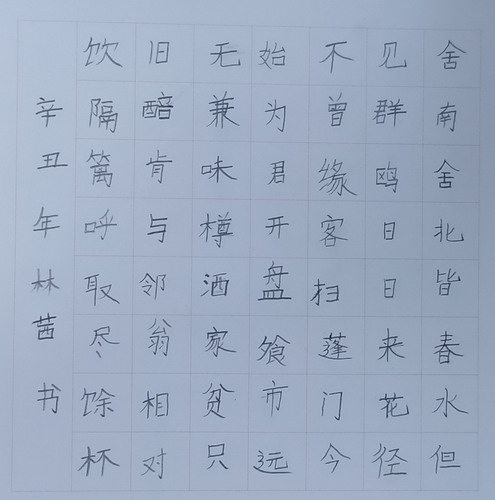 舍南舍北皆春水但
见群鸥日日来花径
不曾缘客扫蓬门今
始为君开盘飧市远
无兼味樽酒家贫只
旧醅肯与邻翁相对
饮隔篱呼取尽馀杯
辛丑年林茜书